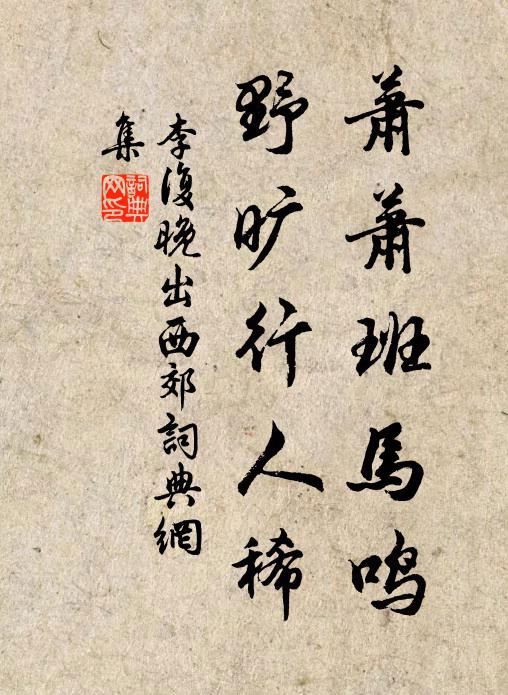 萧萧班馬鸣
野旷行人稀
李復晚出西郊詞典網
集
詞典
网印